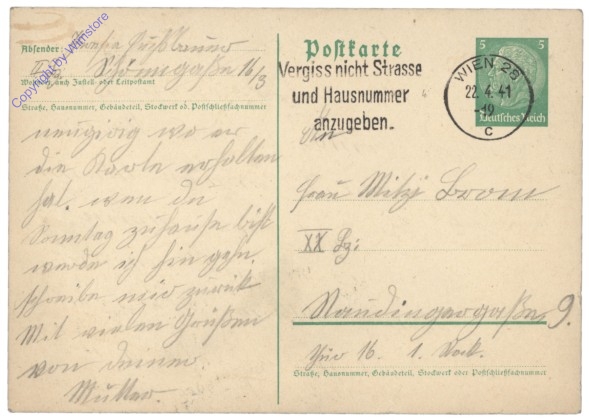 Copyright by Winstore
Absender:
16/3
Wohnort, auch Zustell- oder Leitpostamt
Straße, Hausnummer, Gebäudeteil, Stockwerk od. Postschließfachnummer
neugierig wo er
die Karte erhalten
hat. wen du
Sonntag zuhause bist
werde ich hin gehn.
schreibe mir zurück
Mit vielen Grüßen
von deiner
Mutter.
Postkarte
Vergiss nicht Strasse
und Hausnummer
anzugeben.
5 5
Deutsches Reich
WIEN 25
22.4.41
-19
c
An
Frau Mitzi Brom
XX Bz:
Staudingergaße 9.
Tür 16. 1. Stock.
Straße, Hausnummer, Gebäudeteil, Stockwerk oder Postschließfachnummer